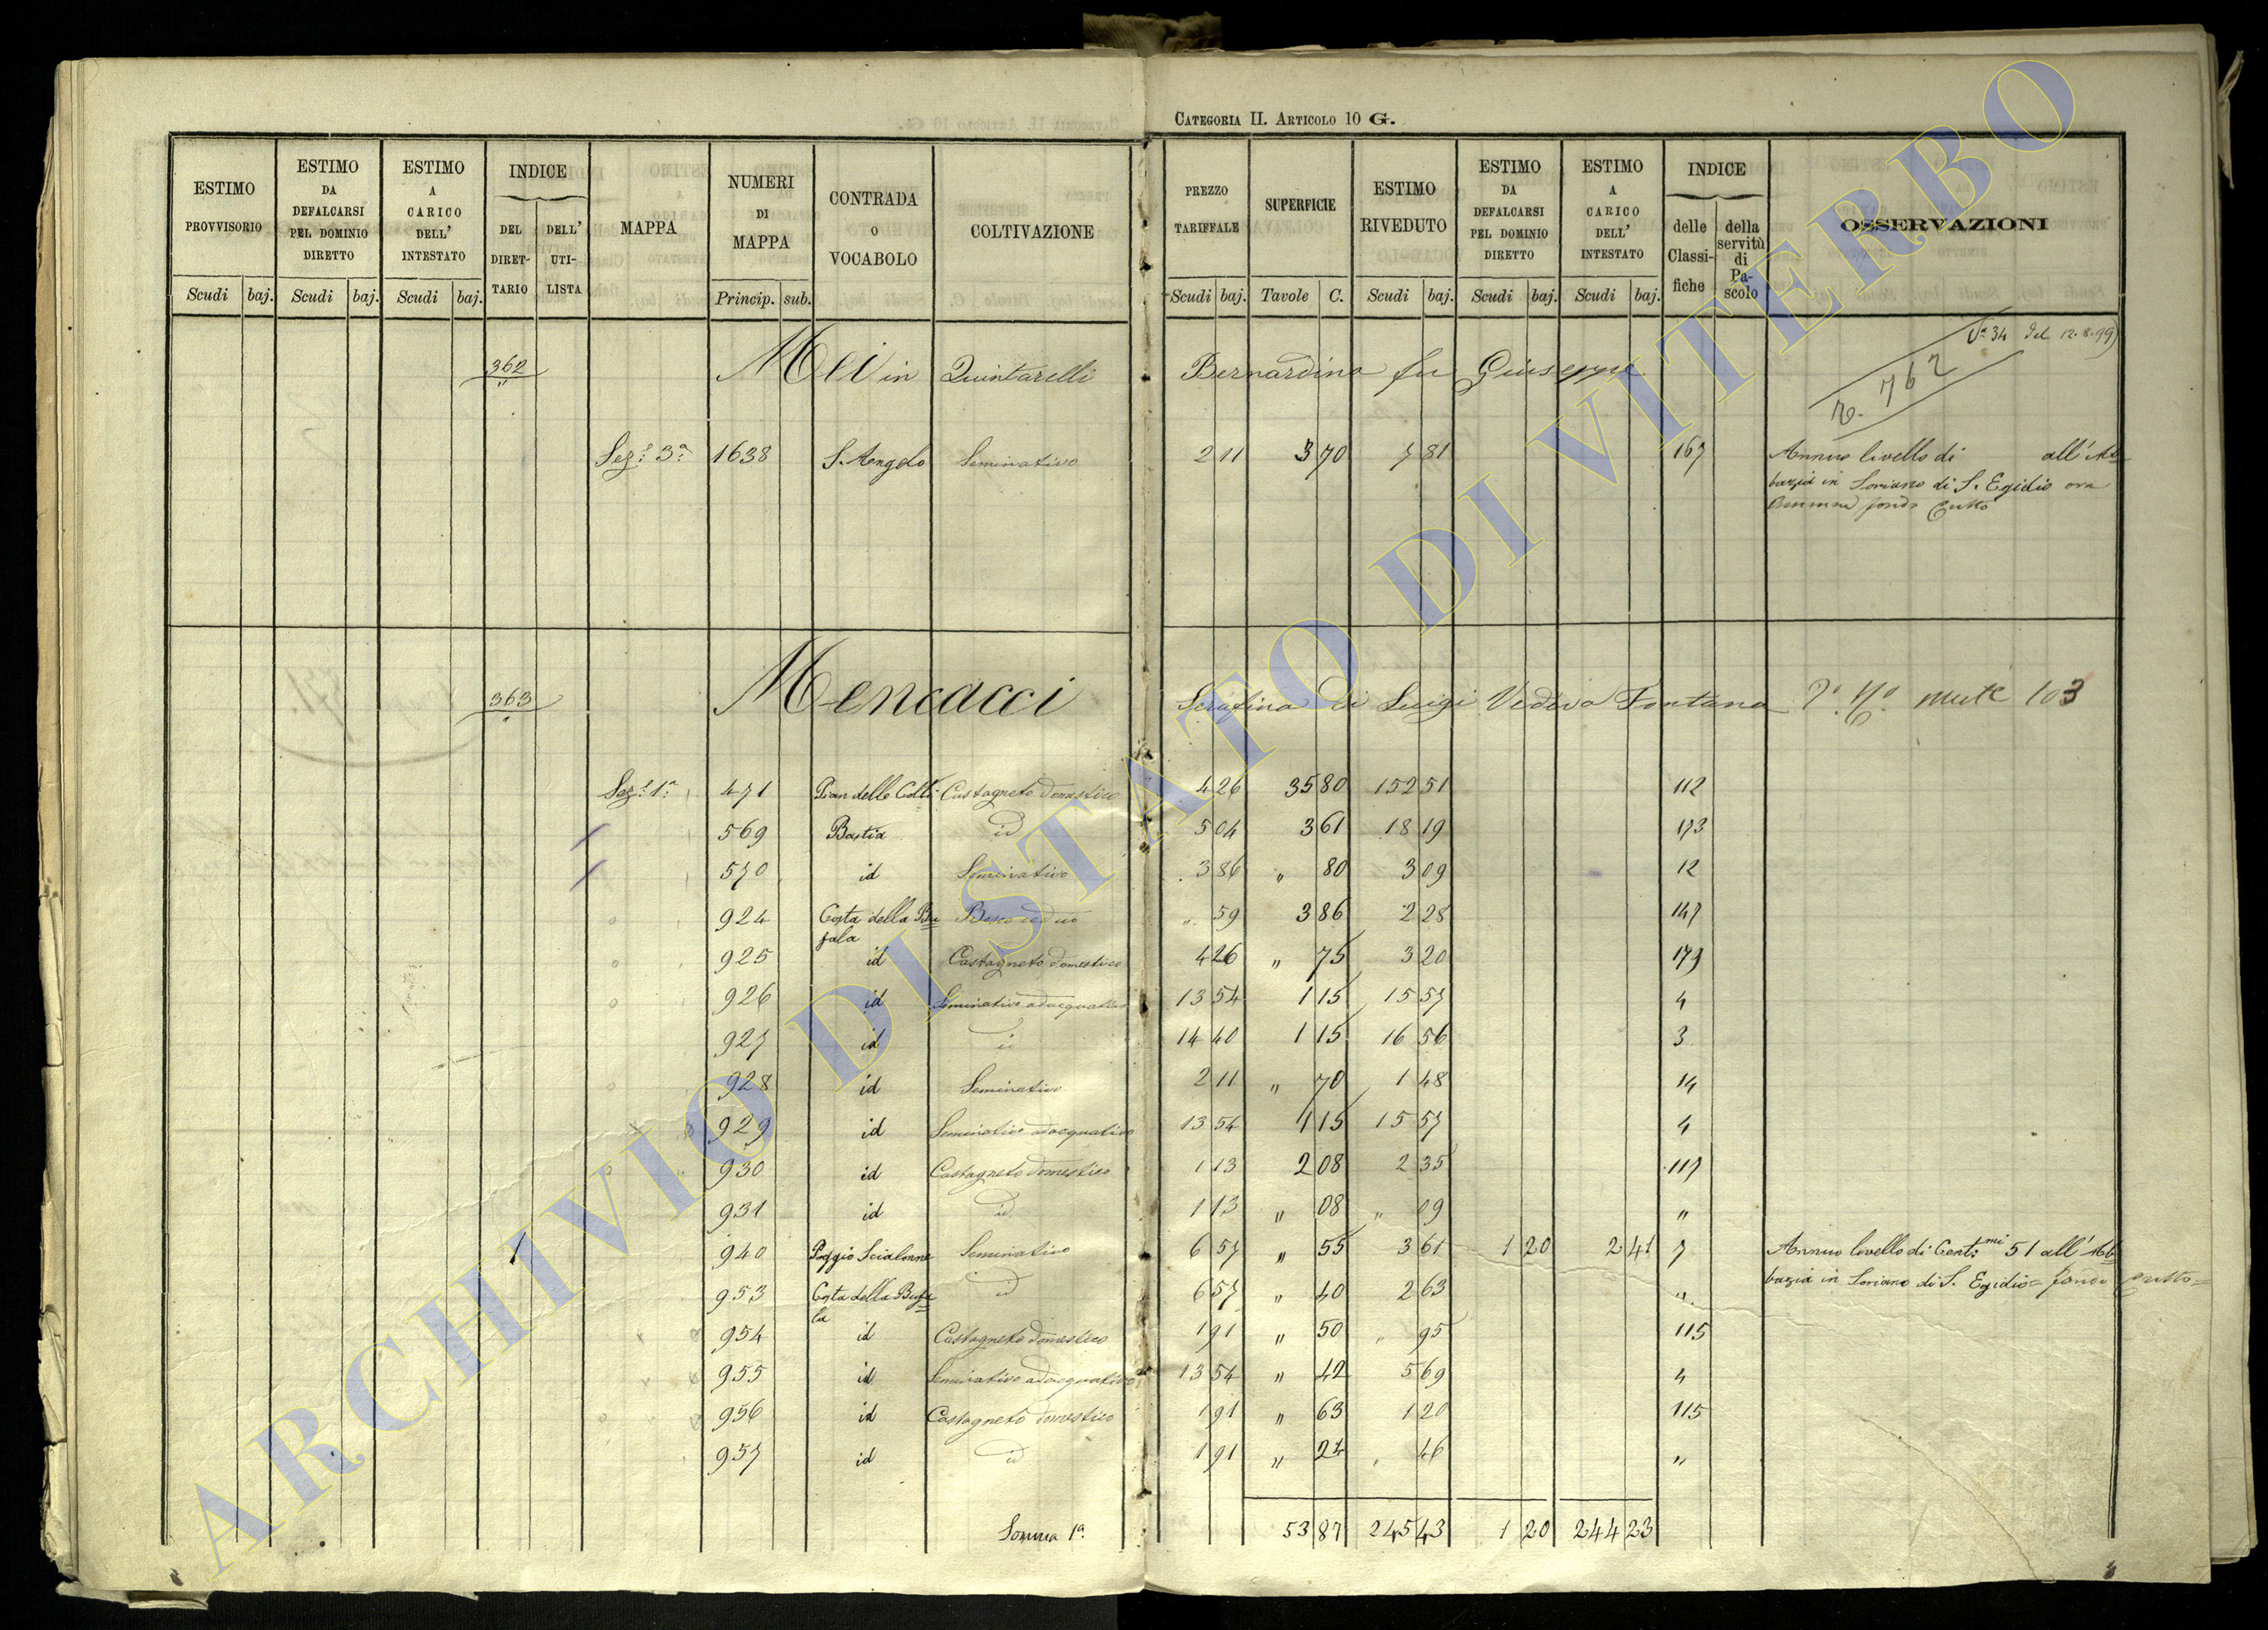 CATEGORIA II. ARTICOLO 10 G.
ESTIMO PROVVISORIO Scudi baj.
ESTIMO DA DEFALCARSI PEL DOMINIO DIRETTO Scudi baj.
ESTIMO A CARICO DELL' INTESTATO Scudi baj.
INDICE DEL DIRET-TARIO DELL' UTI-LISTA
MAPPA
NUMERI DI MAPPA Princip. sub.
CONTRADA O VOCABOLO
COLTIVAZIONE
PREZZO TARIFFALE Scudi baj.
SUPERFICIE Tavole C.
ESTIMO RIVEDUTO Scudi baj.
ESTIMO DA DEFALCARSI PEL DOMINIO DIRETTO Scudi baj.
ESTIMO A CARICO DELL' INTESTATO Scudi baj.
INDICE delle Classi-fiche della servitù di Pa-scolo
OSSERVAZIONI
362 Mei in Quintarelli Bernardina fu Giuseppe
Va 34 del 12.8.99
n. 762
Sez.e 3.a 1638 S. Angelo Seminativo 2 11 3 70 7 81 167 Annuo livello di all'Ab=
bazia in Soriano di S. Egidio ora
fondo Culto
363 Mencacci Serafina di Luigi Vedova Fontana mute 103
Sez.e 1.a 471 Pian delle Colli Castagneto domestico 4 26 35 80 152 51 112
569 Bastia id 5 04 3 61 18 19 173
570 id Seminativo 3 86 " 80 3 09 12
924 Costa della Bu= Bosco ceduo " 59 3 86 2 28 147
fala
925 id Castagneto domestico 4 26 " 75 3 20 173
926 id Seminativo adacquativo 13 54 1 15 15 57 4
927 id id 14 40 1 15 16 56 3
928 id Seminativo 2 11 " 70 1 48 14
929 id Seminativo adacquativo 13 54 1 15 15 57 4
930 id Castagneto domestico 1 13 2 08 2 35 117
931 id id 1 13 " 08 " 09 "
1 940 Poggio Scialonne Seminativo 6 57 " 55 3 61 1 20 2 41 7 Annuo livello di Cent.mi 51 all'Ab=
bazia in Soriano di S. Egidio = fondo Culto=
953 Costa della Bufa= id 6 57 " 40 2 63 "
la
954 id Castagneto domestico 1 91 " 50 " 95 115
955 id Seminativo adacquativo 13 54 " 42 5 69 4
956 id Castagneto domestico 1 91 " 63 1 20 115
957 id id 1 91 " 24 " 46 "
Somma 1a. 53 87 245 43 1 20 244 23
ARCHIVIO DI STATO DI VITERBO